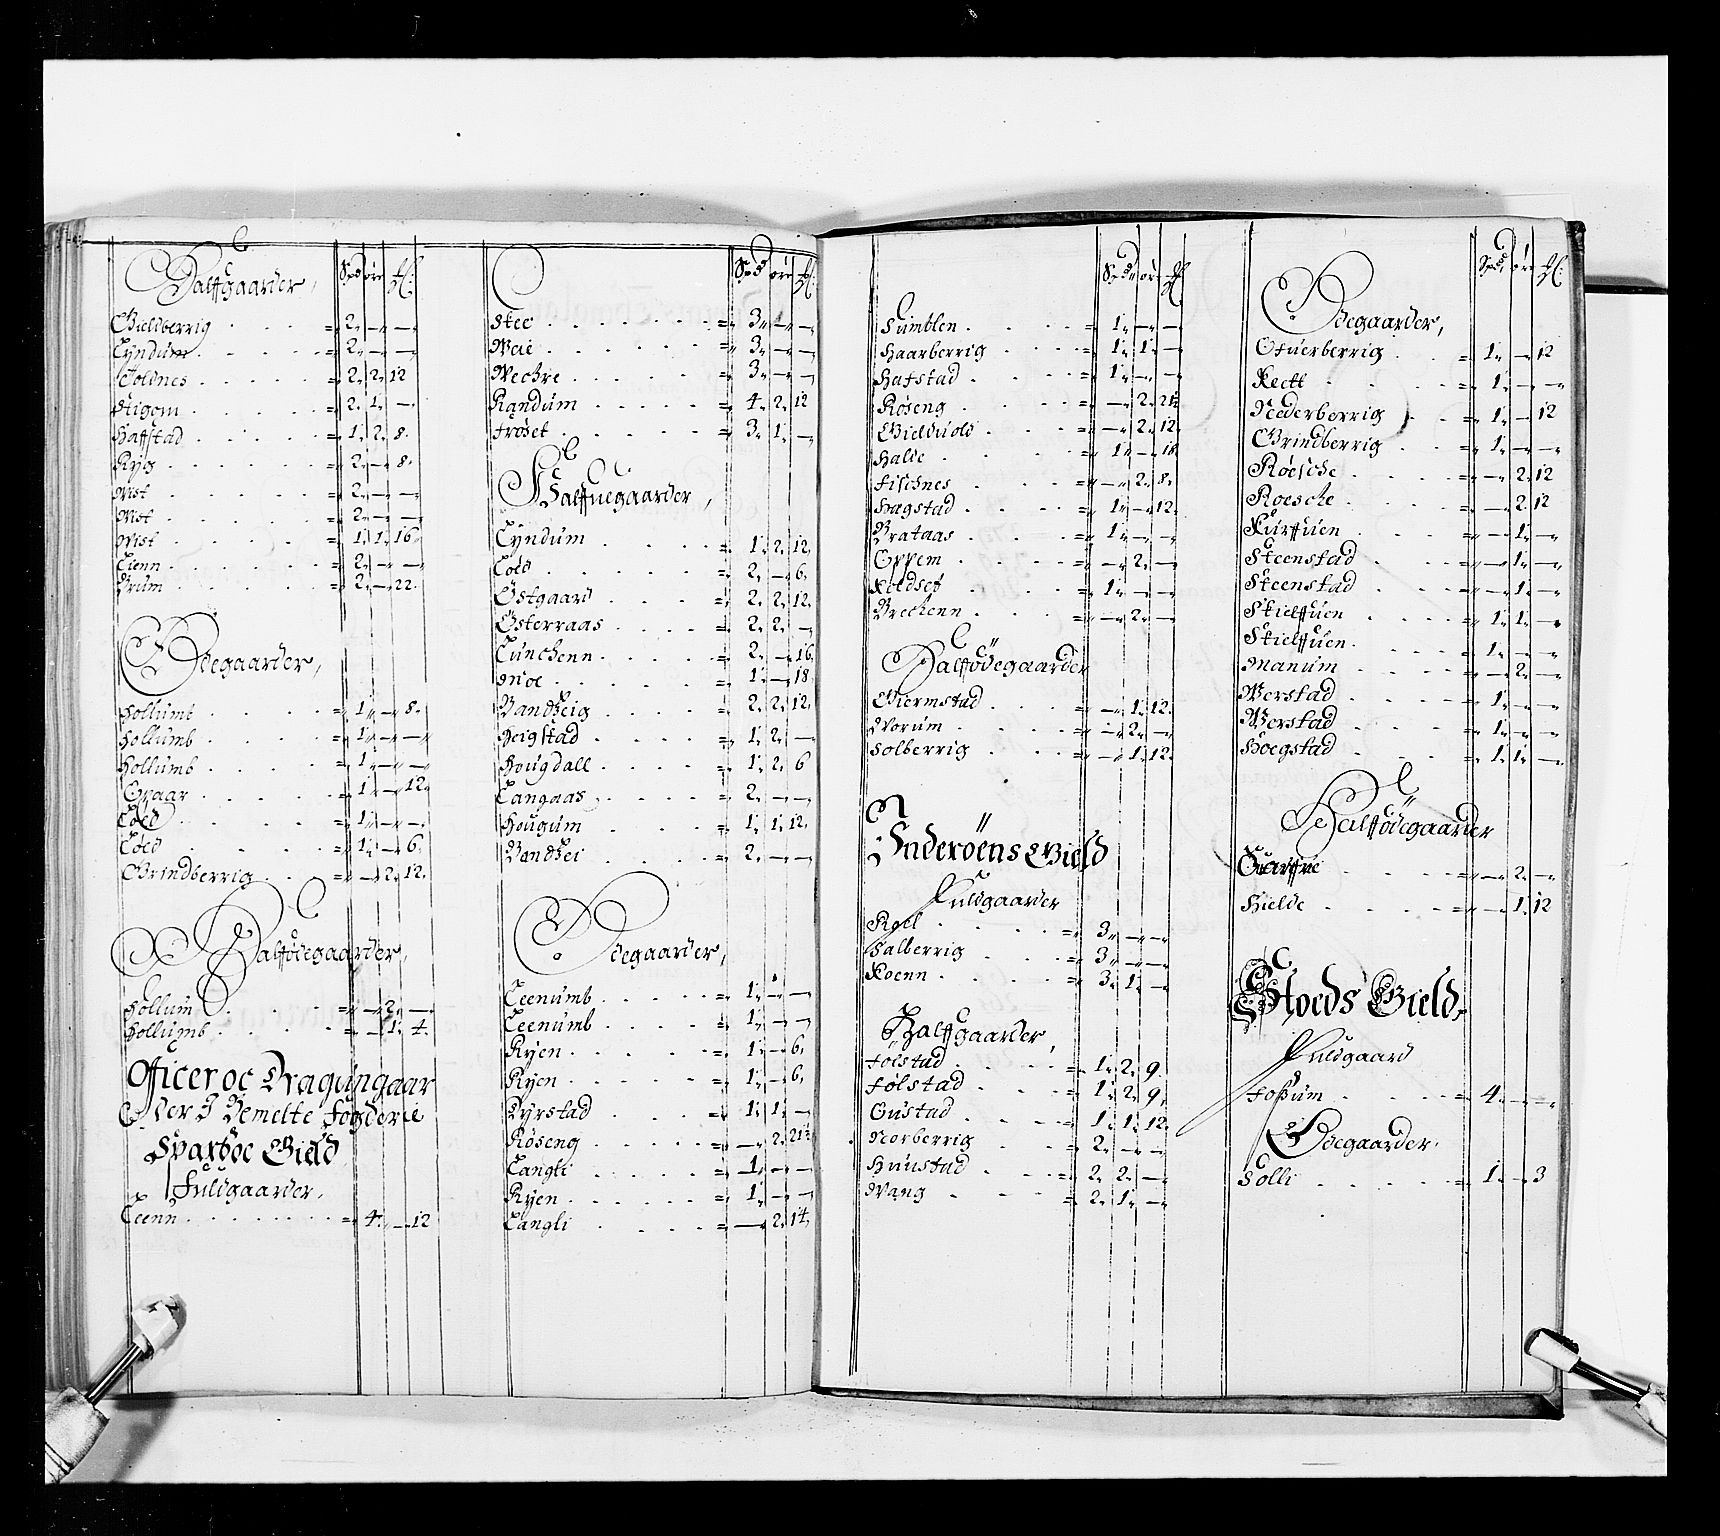 Halffgaarder, Spd ore ℔:
Gieldberrig = 2. — —
Lyndum = 2. — —
Toldnes = 2. 2. 12
Stigom = 2. 1. —
Haffstad = 1. 2. 8.
Ryg = 2. — 8.
Wist = 2. — —
Wist = 2. — —
Wist = 1. 1. 16
Lienn = 2. — —
Brum = 2. — 22.
Ødegaarder,
Hollumb = 1. — 8.
Hollumb = 1. — —
Hollumb = 1. — —
Opaar = 1. — 12.
Løed = 1. — —
Løed = 1. — 6.
Grindberrig = — 2. 12.
Halfødegaarder,
Hollum = — 2. —
Hollumb = — 1. 4.
Officer oc Dragungaar
der I Bemelte Fogderie
Sparboe Gield
Fuldgaarder,
Leenn = 4. — 12
Spd ore ℔:
Stee = 3. — —
Weie = 3. — —
Wechre = 3. — —
Randum = 4. 2. 12
Frøset = 3. 1. —
Halffuegaarder,
Lyndum = 1. 2. 12.
Løed = 2. — 6.
Østgaard = 2. 2. 12.
Østerraas = 2. 2. —
Lunchenn = 2. — 16.
Moe = 1. — 18.
Dandheig = 2. 2. 12.
Heigstad = 1. 2. —
Hougdall = 1. 2. 6
Langaas = 2. — —
Hougum = 1. 1. 12.
Dandhei = 2. — —
Ødegaarder,
Leenumb = 1. — —
Leenumb = 1. — —
Ryen = 1. — 6.
Ryen = 1. — 6.
Dyrstad = 1. 1. —
Røseng = — 2. 21½
Langli = 1. — —
Ryen = 1. — —
Langli = — 2. 14.
Spd ore ℔
Sumblen = 1. — —
Haarberrig = 1. 1. —
Hafstad = 1. — —
Røseng = — 2. 21½
Gielduold = — 2. 12.
Halle = 1. — 18
Fischnes = — 2. 8.
Hagstad = 1. — 12.
Brataas = 1. — —
Oppem = — 2. —
Keldsef = 1. — —
Brechenn = — 2. —
Halfødegaarder
Giermstad = — 1. 12.
Worum = — 2. —
Solberrig = — 1. 12.
Inderøens Gield
Fuldgaarder
Roel = 3. — —
Salberrig = 3. — —
Roenn = 3. 1. —
Halffgaarder,
Følstad = 1. 2. 9.
Følstad = 1. 2. 9.
Gustad = 1. 1. 12.
Norberrig = 2. — —
Hunstad = 2. 2. —
Wang = 2. 1. —
Spd. ore ℔
Ødegaarder,
Ofuerberrig = 1. — 12
Rectt = 1. — —
Nederberrig = 1. — 12
Grindberrig = 1. — —
Røesche = — 2. 12
Roesche = — 2. 12
Kurffuen = — 1. —
Steenstad = — 1. —
Steenstad = — 1. —
Skielffuen = 1. 1. —
Skielffuen = 1. — —
Manum = — 2. —
Werstad = 1. — —
Werstad = 1. — —
Hoegstad = 1. 1. —
Halffødegaarder
= — 2. —
Hielde = — 1. 12
Stoeds Gield,
Fuldgaard
Fossum = 4. — —
Ødegaarder.
Solli = 1. — 3